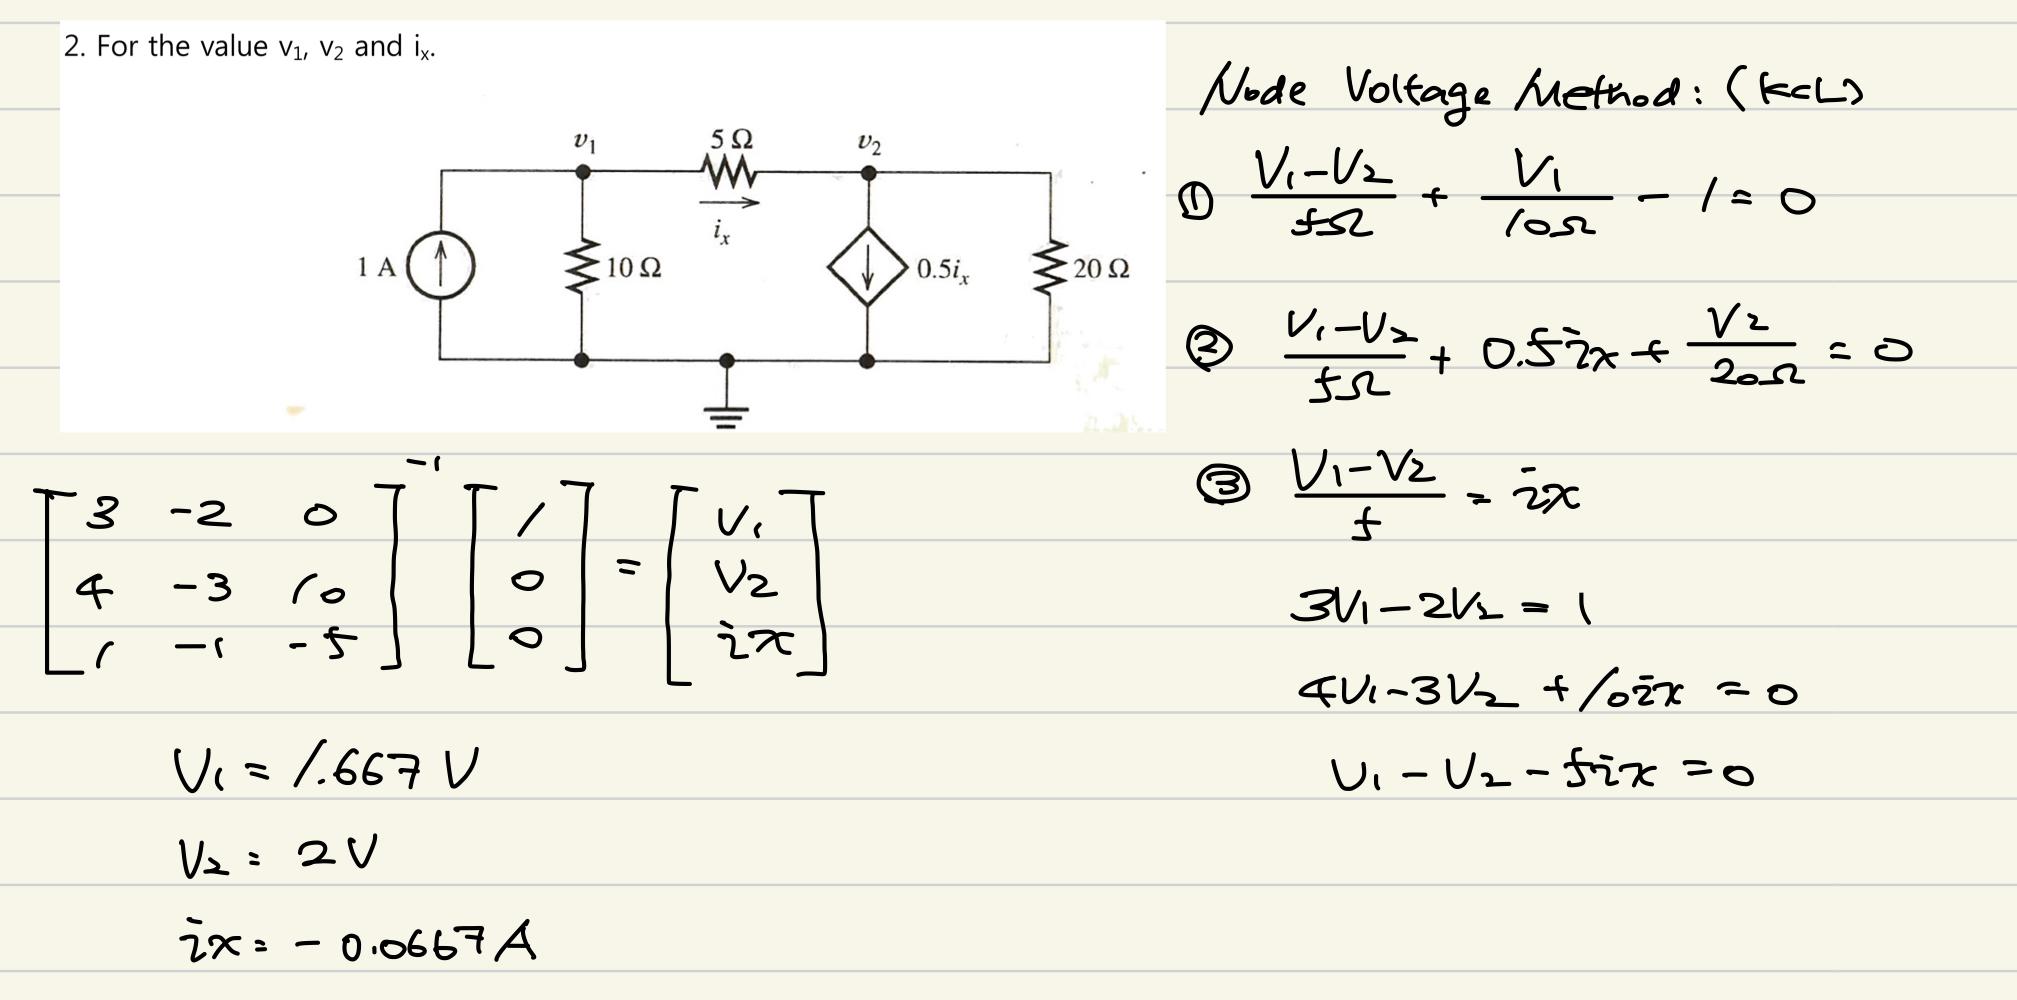 2. For the value v₁, v₂ and iₓ.
v₁
5 Ω
v₂
iₓ
1 A
10 Ω
0.5iₓ
20 Ω
Node Voltage Method: (KCL)
① (V₁-V₂)/5Ω + V₁/10Ω - 1 = 0
② (V₁-V₂)/5Ω + 0.5ix + V₂/20Ω = 0
③ (V₁-V₂)/5 = ix
3V₁-2V₂ = 1
4V₁-3V₂ + 10ix = 0
V₁-V₂-5ix = 0
[3 -2 0; 4 -3 10; 1 -1 -5]⁻¹ [1; 0; 0] = [V₁; V₂; ix]
V₁ = 1.667 V
V₂ = 2 V
ix = -0.0667 A